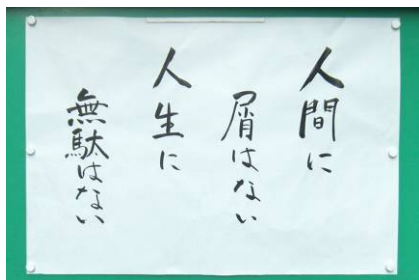 人間に
屑はない
人生に
無駄はない